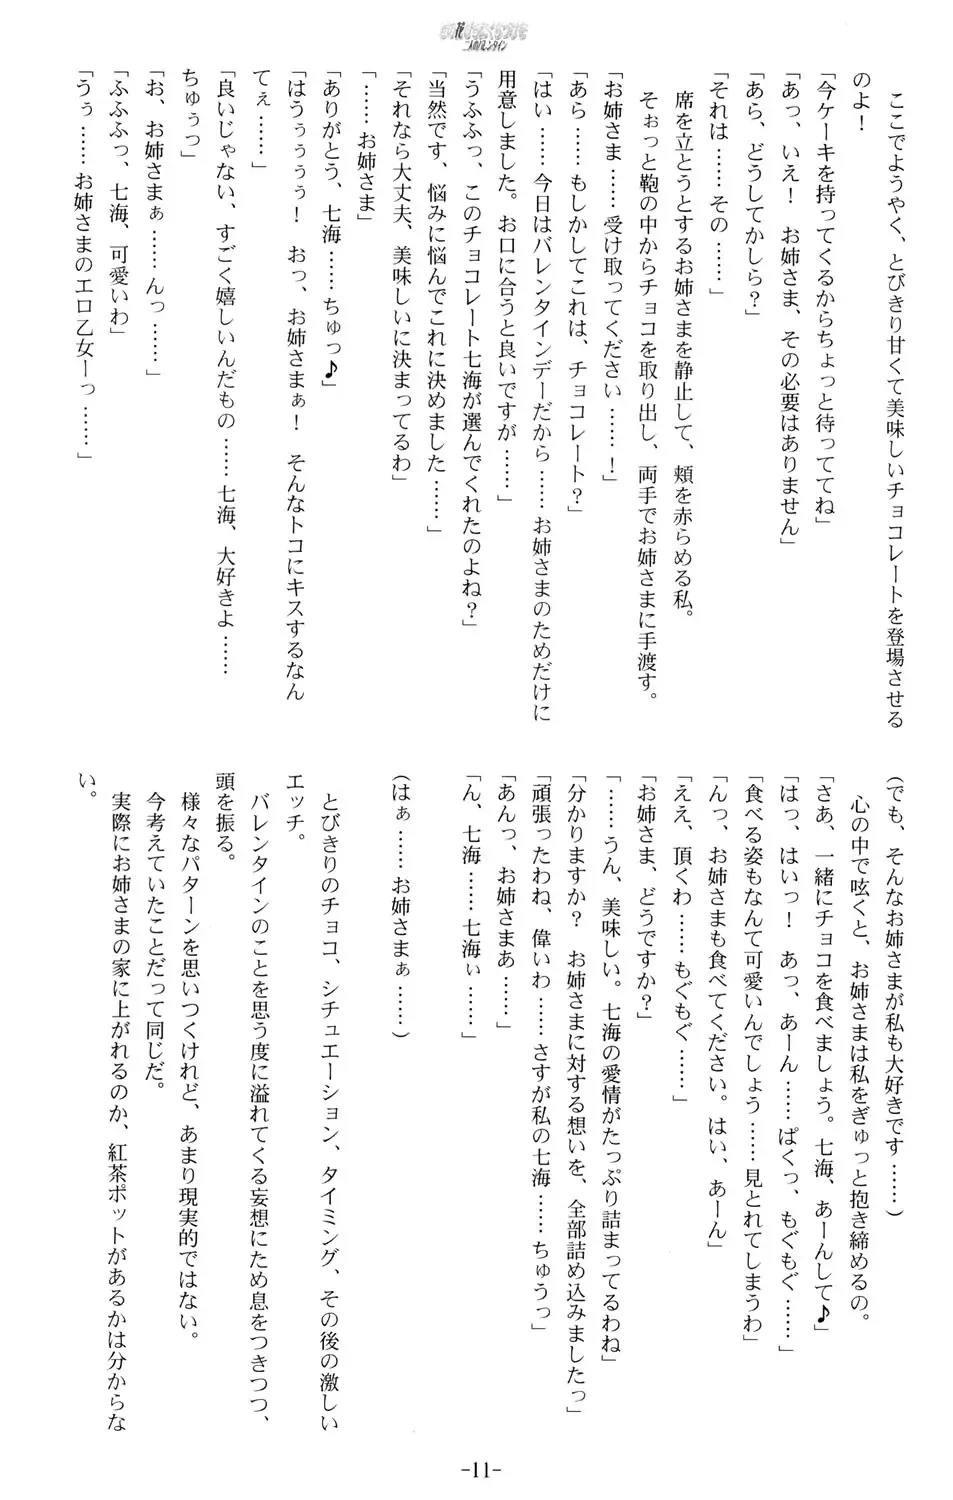 二人のバレンタイン
ここでようやく、とびきり甘くて美味しいチョコレートを登場させる
のよ！
「今ケーキを持ってくるからちょっと待っててね」
「あっ、いえ！　お姉さま、その必要はありません」
「あら、どうしてかしら？」
「それは……その……」
席を立とうとするお姉さまを静止して、頬を赤らめる私。
そぉっと鞄の中からチョコを取り出し、両手でお姉さまに手渡す。
「お姉さま……受け取ってください……！」
「あら……もしかしてこれは、チョコレート？」
「はい……今日はバレンタインデーだから……お姉さまのためだけに
用意しました。お口に合うと良いですが……」
「うふふっ、このチョコレート七海が選んでくれたのよね？」
「当然です、悩みに悩んでこれに決めました……」
「それなら大丈夫、美味しいに決まってるわ」
「……お姉さま」
「ありがとう、七海……ちゅっ♪」
「はうぅぅぅぅ！　おっ、お姉さまぁ！　そんなトコにキスするなん
てぇ……」
「良いじゃない、すごく嬉しいんだもの……七海、大好きよ……
ちゅぅっ」
「お、お姉さまぁ……んっ……」
「ふふふっ、七海、可愛いわ」
「うぅ……お姉さまのエロ乙女ーっ……」
（でも、そんなお姉さまが私も大好きです……）
心の中で呟くと、お姉さまは私をぎゅっと抱き締めるの。
「さあ、一緒にチョコを食べましょう。七海、あーんして♪」
「はっ、はいっ！　あっ、あーん……ぱくっ、もぐもぐ……」
「食べる姿もなんて可愛いんでしょう……見とれてしまうわ」
「んっ、お姉さまも食べてください。はい、あーん」
「ええ、頂くわ……もぐもぐ……」
「お姉さま、どうですか？」
「……うん、美味しい。七海の愛情がたっぷり詰まってるわね」
「分かりますか？　お姉さまに対する想いを、全部詰め込みましたっ」
「頑張ったわね、偉いわ……さすが私の七海……ちゅうっ」
「あんっ、お姉さまあ……」
「ん、七海……七海ぃ……」
（はぁ……お姉さまぁ……）
とびきりのチョコ、シチュエーション、タイミング、その後の激しい
エッチ。
バレンタインのことを思う度に溢れてくる妄想にため息をつきつつ、
頭を振る。
様々なパターンを思いつくけれど、あまり現実的ではない。
今考えていたことだって同じだ。
実際にお姉さまの家に上がれるのか、紅茶ポットがあるかは分からな
い。
-11-